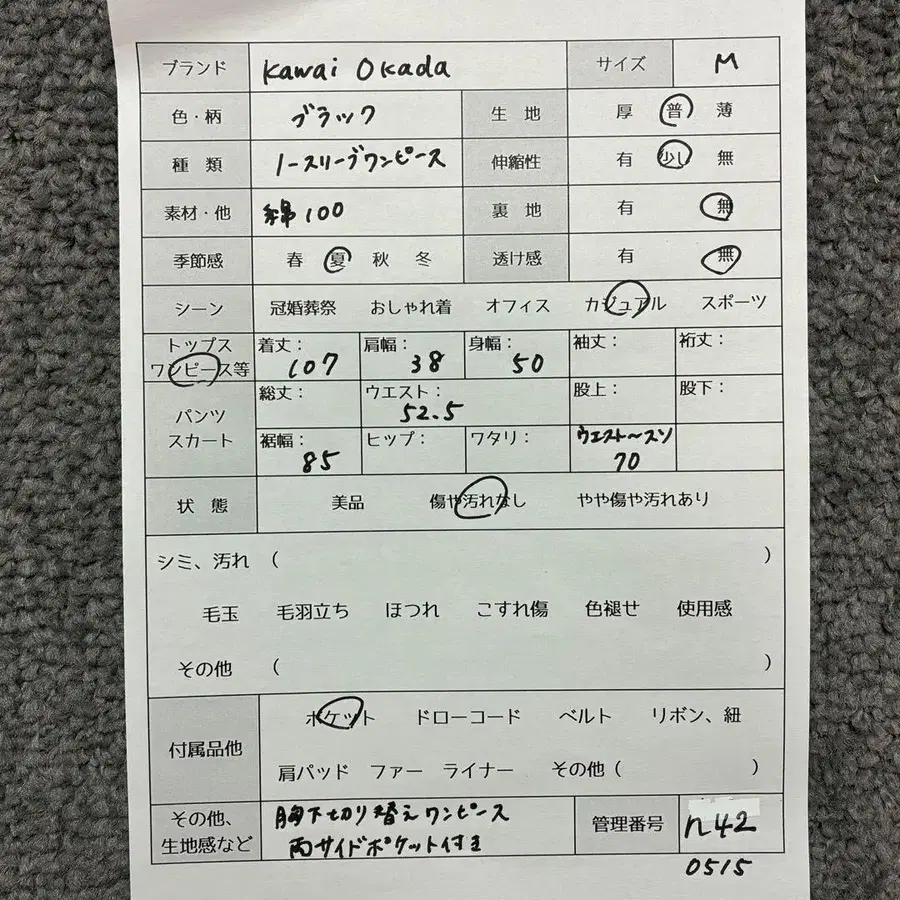 ブランド Kawai Okada サイズ M
色・柄 ブラック 生地 厚 普 薄
種類 ノースリーブワンピース 伸縮性 有 少し 無
素材・他 綿100 裏地 有 無
季節感 春 夏 秋 冬 透け感 有 無
シーン 冠婚葬祭 おしゃれ着 オフィス カジュアル スポーツ
トップス ワンピース等 着丈: 107 肩幅: 38 身幅: 50 袖丈: 裄丈:
パンツ スカート 総丈: ウエスト: 52.5 股上: 股下:
裾幅: 85 ヒップ: ワタリ: ウエスト〜スソ 70
状態 美品 傷や汚れなし やや傷や汚れあり
シミ、汚れ ( )
毛玉 毛羽立ち ほつれ こすれ傷 色褪せ 使用感
その他 ( )
付属品他 ポケット ドローコード ベルト リボン、紐
肩パッド ファー ライナー その他 ( )
その他、 胸下切り替えワンピース 管理番号 n42
生地感など 両サイドポケット付き
0515